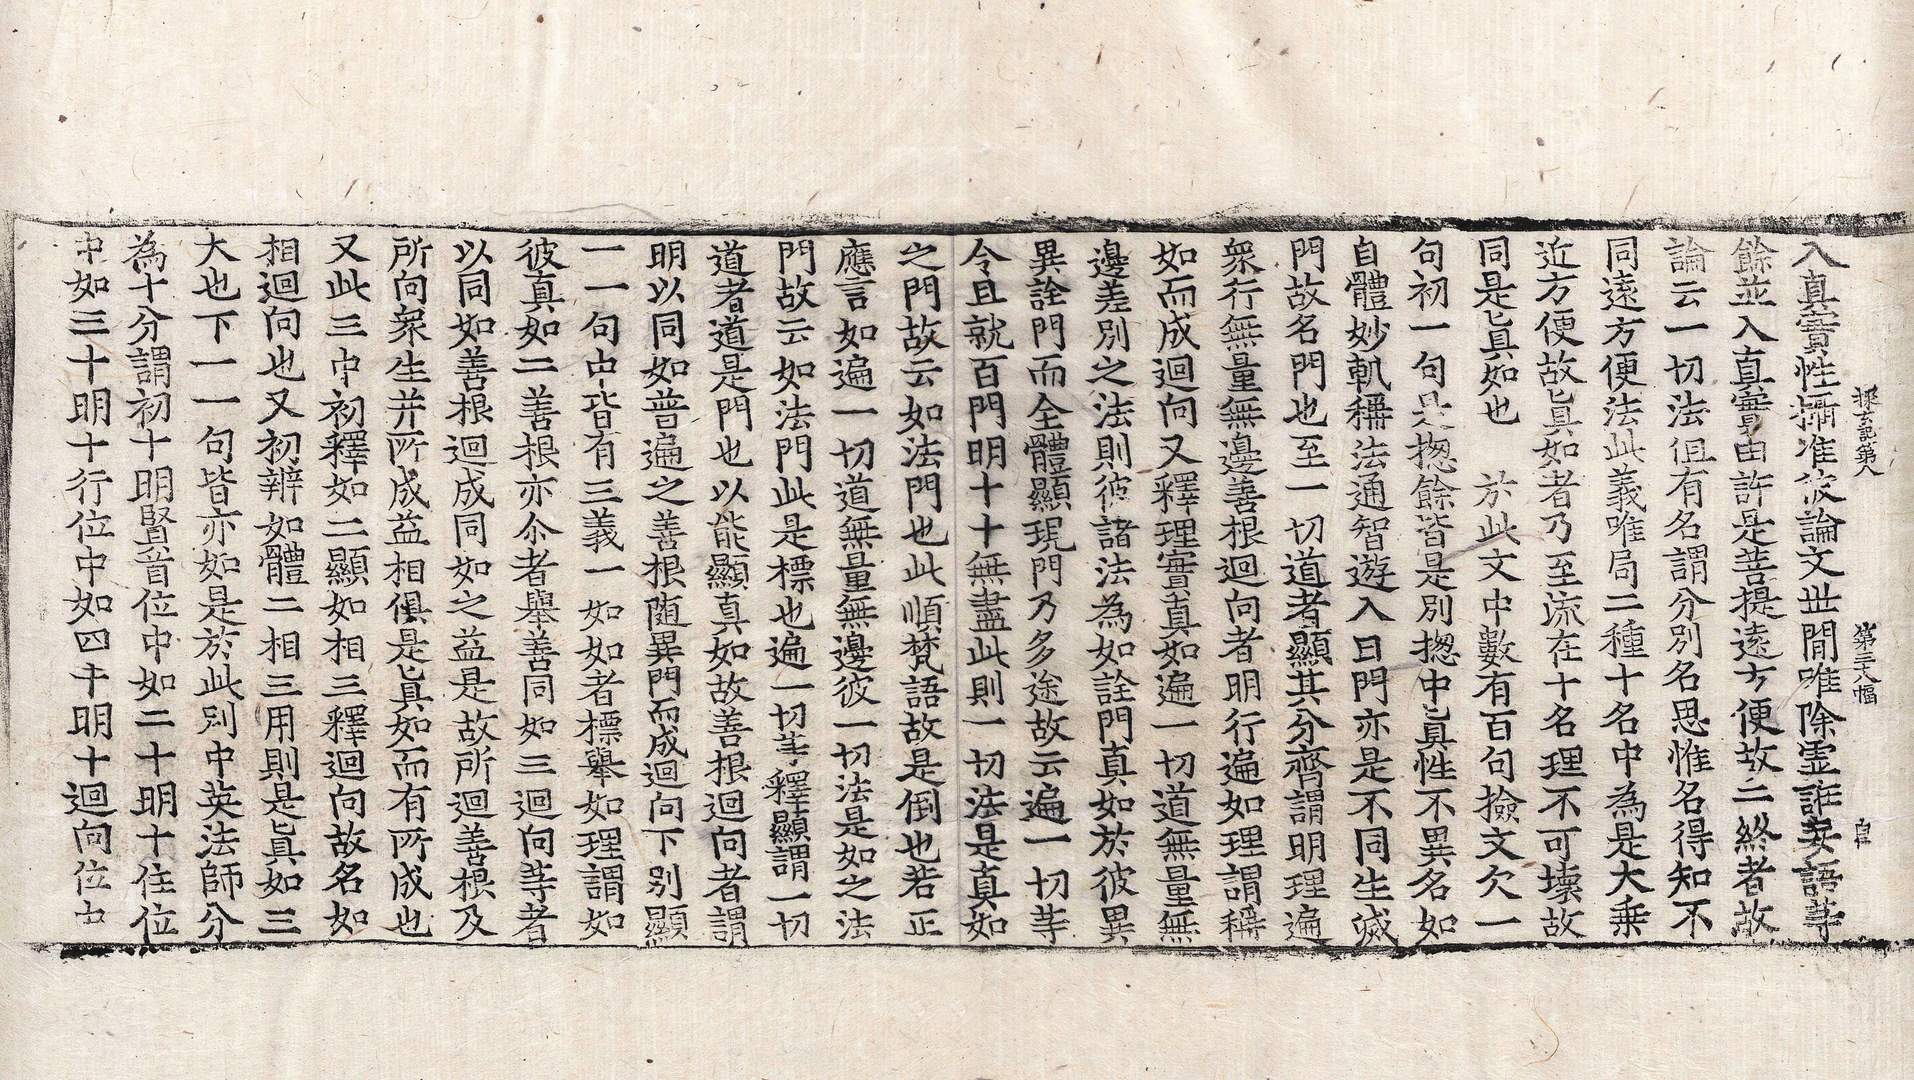 探玄記第八　第三十八幅　自
入真實性攝准彼論文世間唯除靈誑妄語等
餘並入真實由許是菩提遠方便故二終者故
論云一切法但有名謂分別名思惟名得知不
同遠方便法此義唯局二種十名中為是大乗
近方便故㫖真如者乃至流在十名理不可壞故
同是㫖真如也　於此文中數有百句撿文欠一
句初一句是揔餘皆是別揔中真性不異名如
自體妙軌稱法通智遊入曰門亦是不同生滅
門故名門也至一切道者顯其分齊謂明理遍
衆行無量無邊善根迴向者明行遍如理謂稱
如而成迴向又釋理實真如遍一切道無量無
邊差別之法則彼諸法為如詮門真如於彼異
異詮門而全體顯現門乃多途故云遍一切等
今且就百門明十十無盡此則一切法是真如
之門故云如法門也此順梵語故是倒也若正
應言如遍一切道無量無邊彼一切法是如之法
門故云如法門此是標也遍一切等釋顯謂一切
道者道是門也以能顯真如故善根迴向者謂
明以同如普遍之善根随異門而成迴向下別顯
一一句中皆有三義一如如者標舉如理謂如
彼真如二善根亦尒者舉善同如三迴向等者
以同如善根迴成同如之益是故所迴善根及
所向衆生并所成益相俱是真如而有所成也
又此三中初釋如二顯如相三釋迴向故名如
相迴向也又初辨如體二相三用則是真如三
大也下一一句皆亦如是於此別中英法師分
為十分謂初十明賢首位中如二十明十住位
中如三十明十行位中如四十明十迴向位中